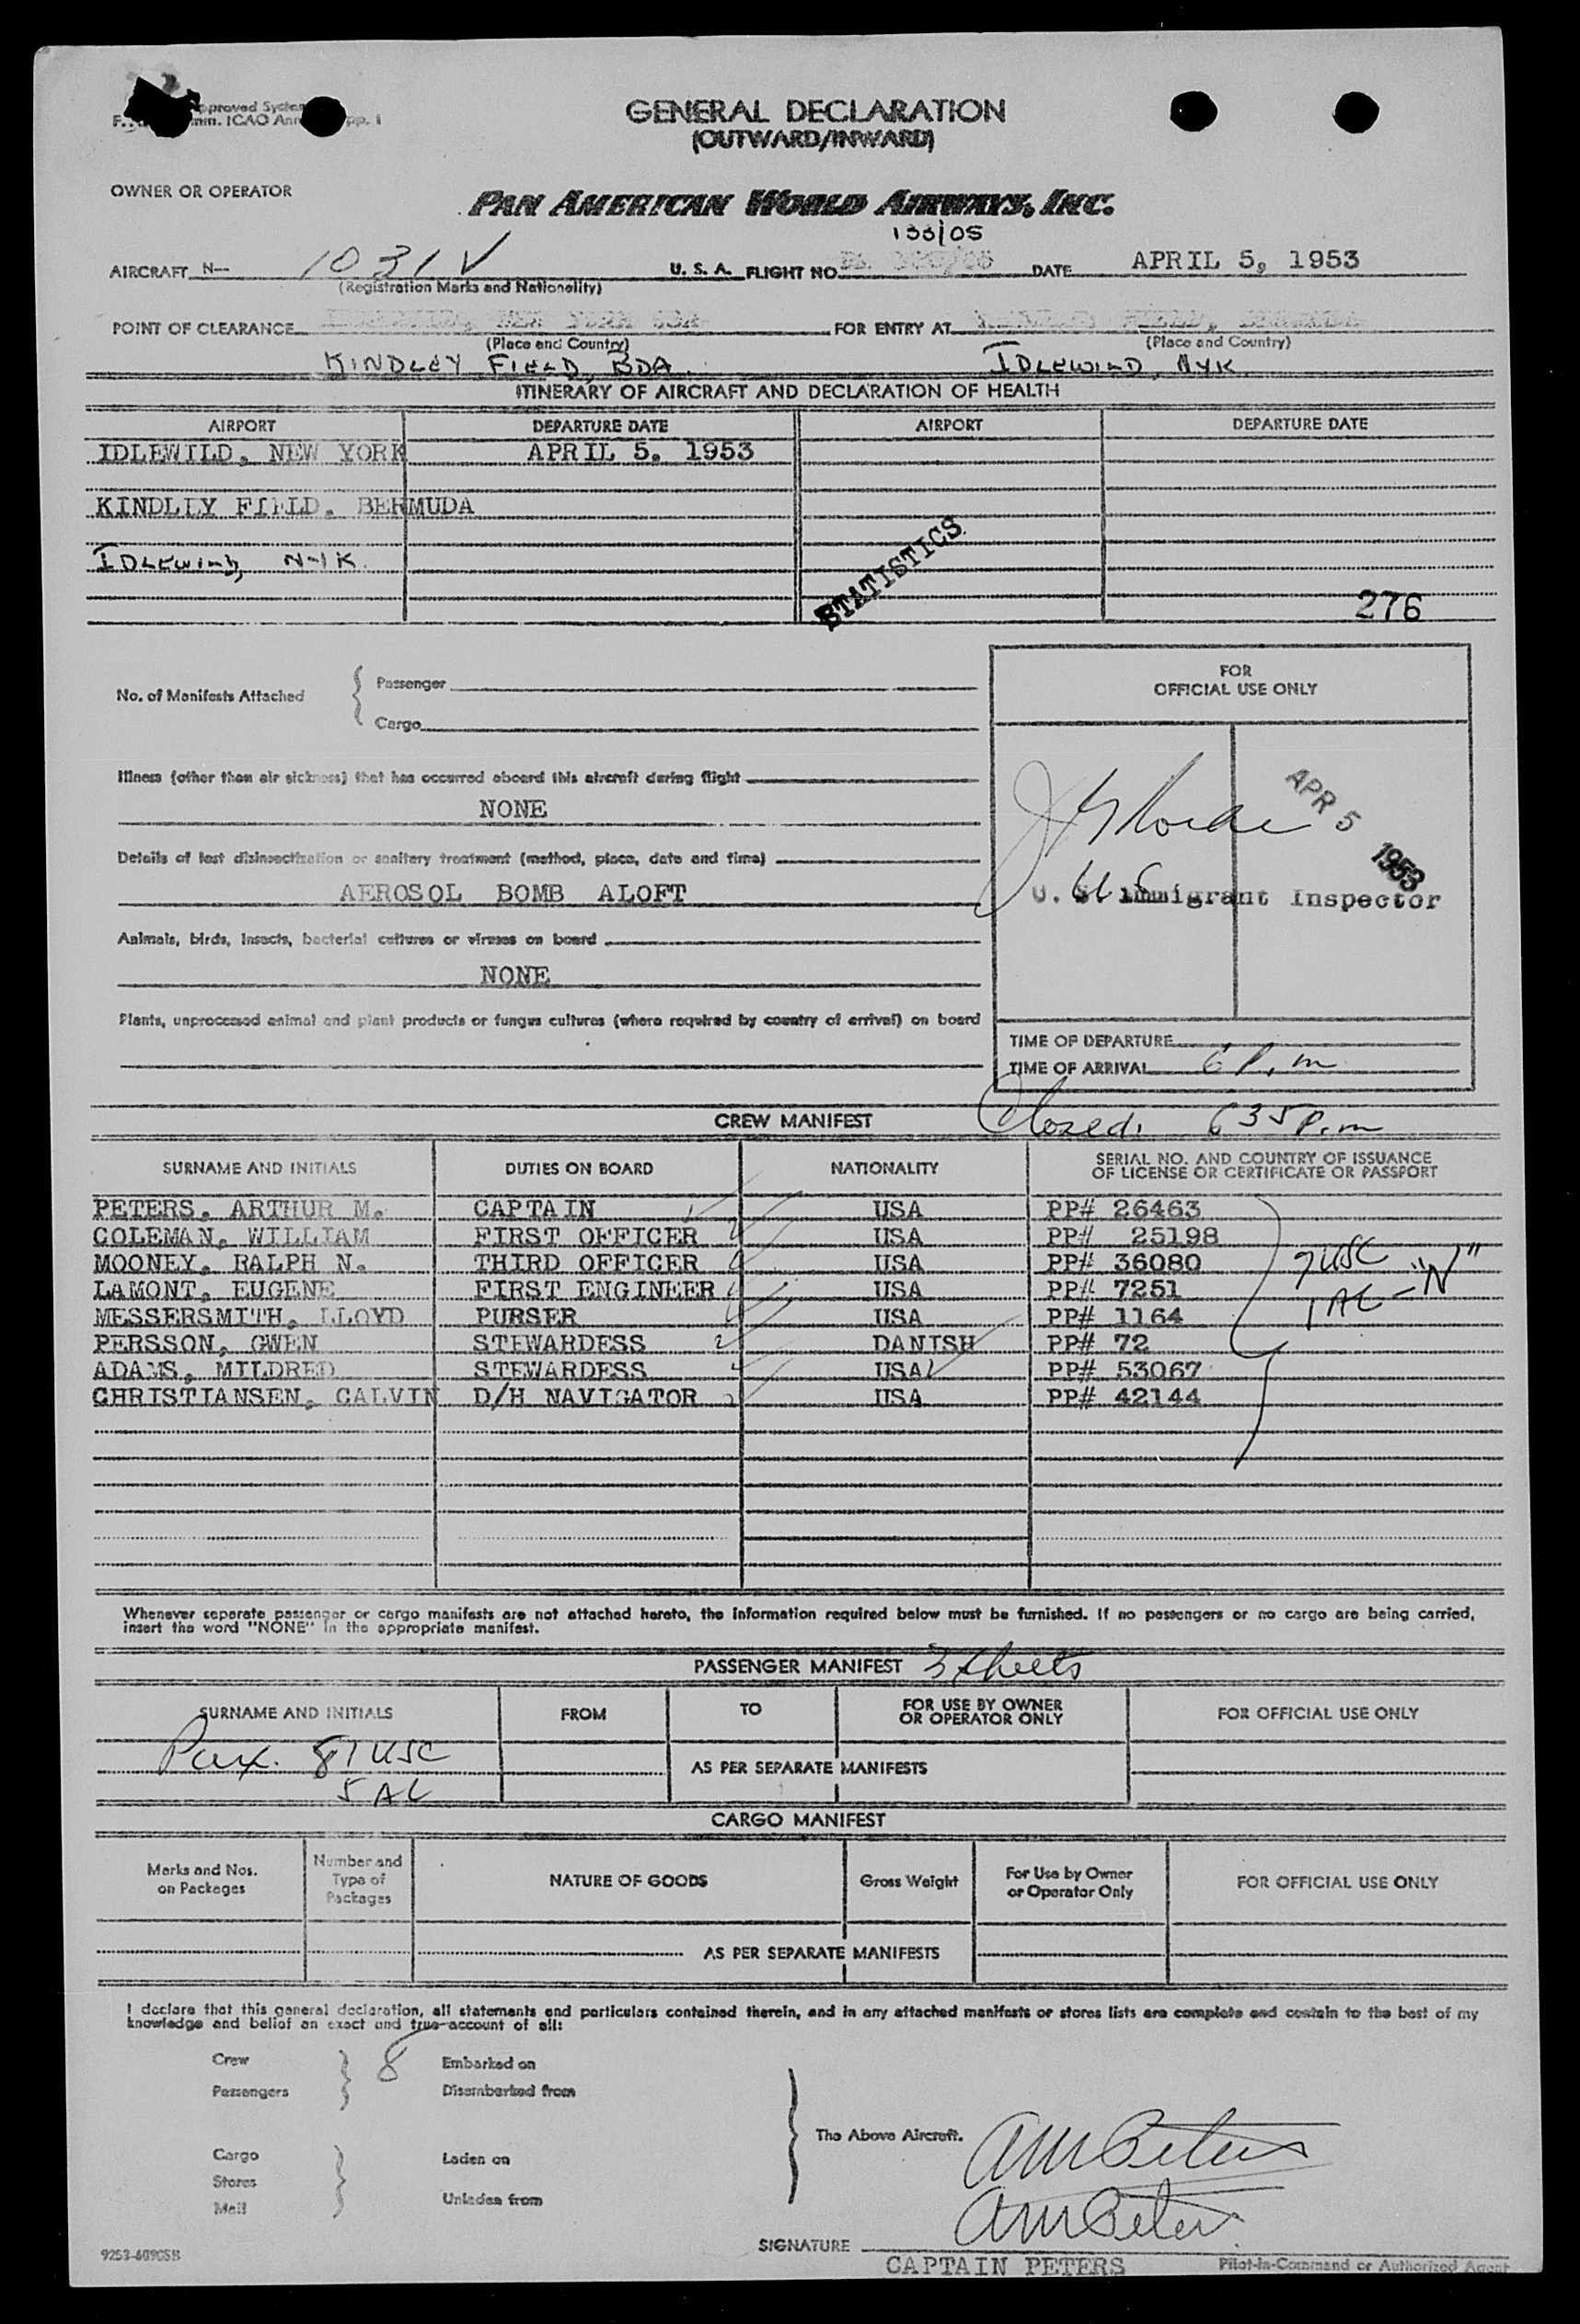 proved System
mm. ICAO Ann pp. 1
GENERAL DECLARATION
(OUTWARD/INWARD)
OWNER OR OPERATOR
PAN AMERICAN WORLD AIRWAYS, INC.
133/05
AIRCRAFT N— 1031V U. S. A. FLIGHT NO. DATE APRIL 5, 1953
(Registration Marks and Nationality)
POINT OF CLEARANCE NEW YORK USA FOR ENTRY AT FIELD, BERMUDA
(Place and Country) (Place and Country)
KINDLEY FIELD, BDA. IDLEWILD, NYK
ITINERARY OF AIRCRAFT AND DECLARATION OF HEALTH
AIRPORT DEPARTURE DATE AIRPORT DEPARTURE DATE
IDLEWILD, NEW YORK APRIL 5, 1953
KINDLEY FIELD, BERMUDA
IDLEWILD, NYK.
STATISTICS
276
FOR
OFFICIAL USE ONLY
No. of Manifests Attached
Passenger
Cargo
Illness (other than air sickness) that has occurred aboard this aircraft during flight
NONE
APR 5 1953
Details of last disinsectization or sanitary treatment (method, place, date and time)
AEROSOL BOMB ALOFT
U. S. Immigrant Inspector
Animals, birds, insects, bacterial cultures or viruses on board
NONE
Plants, unprocessed animal and plant products or fungus cultures (where required by country of arrival) on board
TIME OF DEPARTURE
TIME OF ARRIVAL 6 P.m
CREW MANIFEST Closed: 635 P.m
SURNAME AND INITIALS DUTIES ON BOARD NATIONALITY SERIAL NO. AND COUNTRY OF ISSUANCE
OF LICENSE OR CERTIFICATE OR PASSPORT
PETERS, ARTHUR M. CAPTAIN USA PP# 26463
COLEMAN, WILLIAM FIRST OFFICER USA PP# 25198
MOONEY, RALPH N. THIRD OFFICER USA PP# 36080 7 USC
LAMONT, EUGENE FIRST ENGINEER USA PP# 7251 1 AL - "N"
MESSERSMITH, LLOYD PURSER USA PP# 1164
PERSSON, GWEN STEWARDESS DANISH PP# 72
ADAMS, MILDRED STEWARDESS USA PP# 53067
CHRISTIANSEN, CALVIN D/H NAVIGATOR USA PP# 42144
Whenever separate passenger or cargo manifests are not attached hereto, the information required below must be furnished. If no passengers or no cargo are being carried,
insert the word "NONE" in the appropriate manifest.
PASSENGER MANIFEST 3 sheets
SURNAME AND INITIALS FROM TO FOR USE BY OWNER
OR OPERATOR ONLY FOR OFFICIAL USE ONLY
Pax. 81 USC
AS PER SEPARATE MANIFESTS
5 AL
CARGO MANIFEST
Marks and Nos.
on Packages Number and
Type of
Packages NATURE OF GOODS Gross Weight For Use by Owner
or Operator Only FOR OFFICIAL USE ONLY
AS PER SEPARATE MANIFESTS
I declare that this general declaration, all statements and particulars contained therein, and in any attached manifests or stores lists are complete and contain to the best of my
knowledge and belief an exact and true account of all:
Crew 8 Embarked on
Passengers Disembarked from
The Above Aircraft.
Cargo Laden on
Stores
Mail Unladen from
AM Peters
AM Peters
SIGNATURE
CAPTAIN PETERS Pilot-in-Command or Authorized Agent